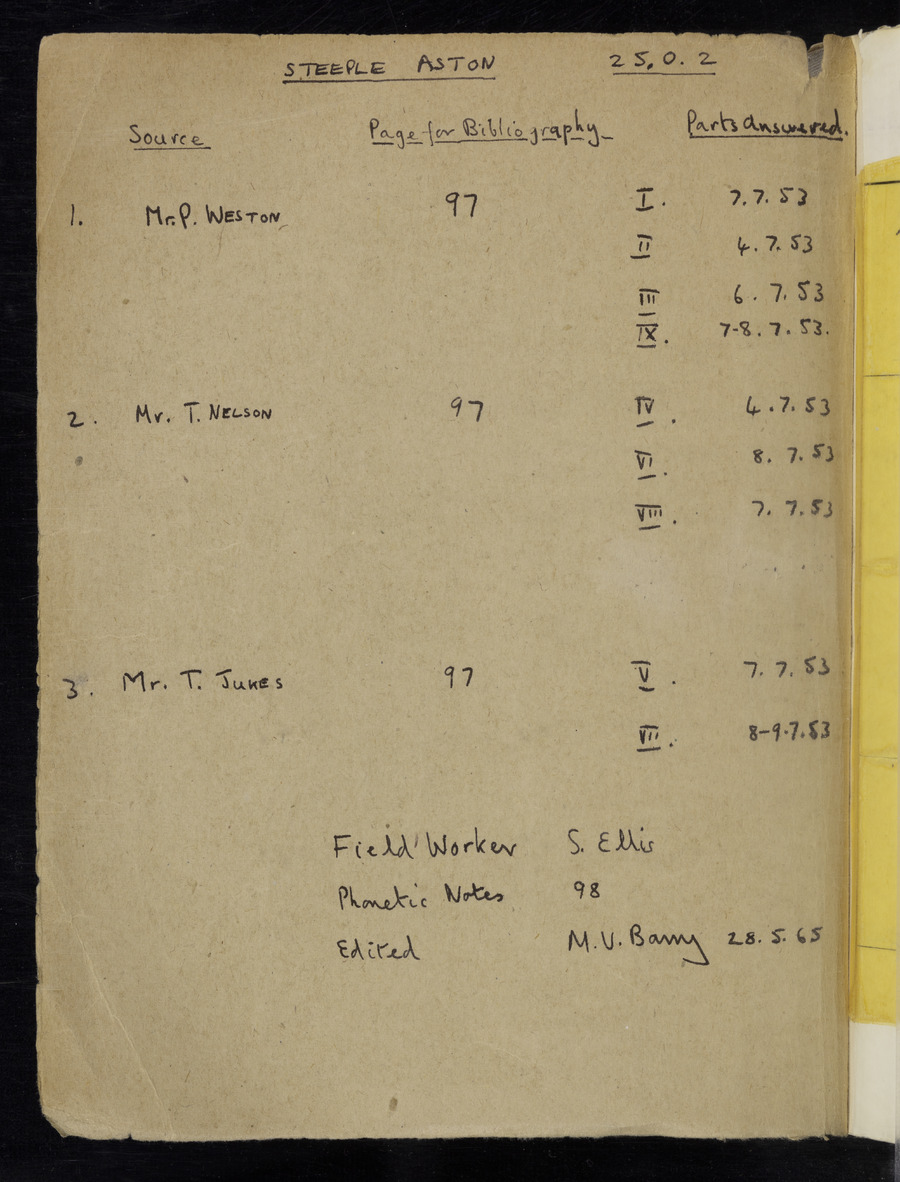 STEEPLE ASTON 25.O.2
Source Page for Bibliography Parts Answered.
1. Mr. P. WESTON 97 I. 7.7.53
II 4.7.53
III 6.7.53
IX. 7-8.7.53.
2. Mr. T. NELSON 97 IV. 4.7.53
VI. 8.7.53
VIII. 7.7.53
3. Mr. T. JUKES 97 V. 7.7.53
VII. 8-9.7.53
Field Worker S. Ellis
Phonetic Notes 98
Edited M.V. Barry 28.5.65